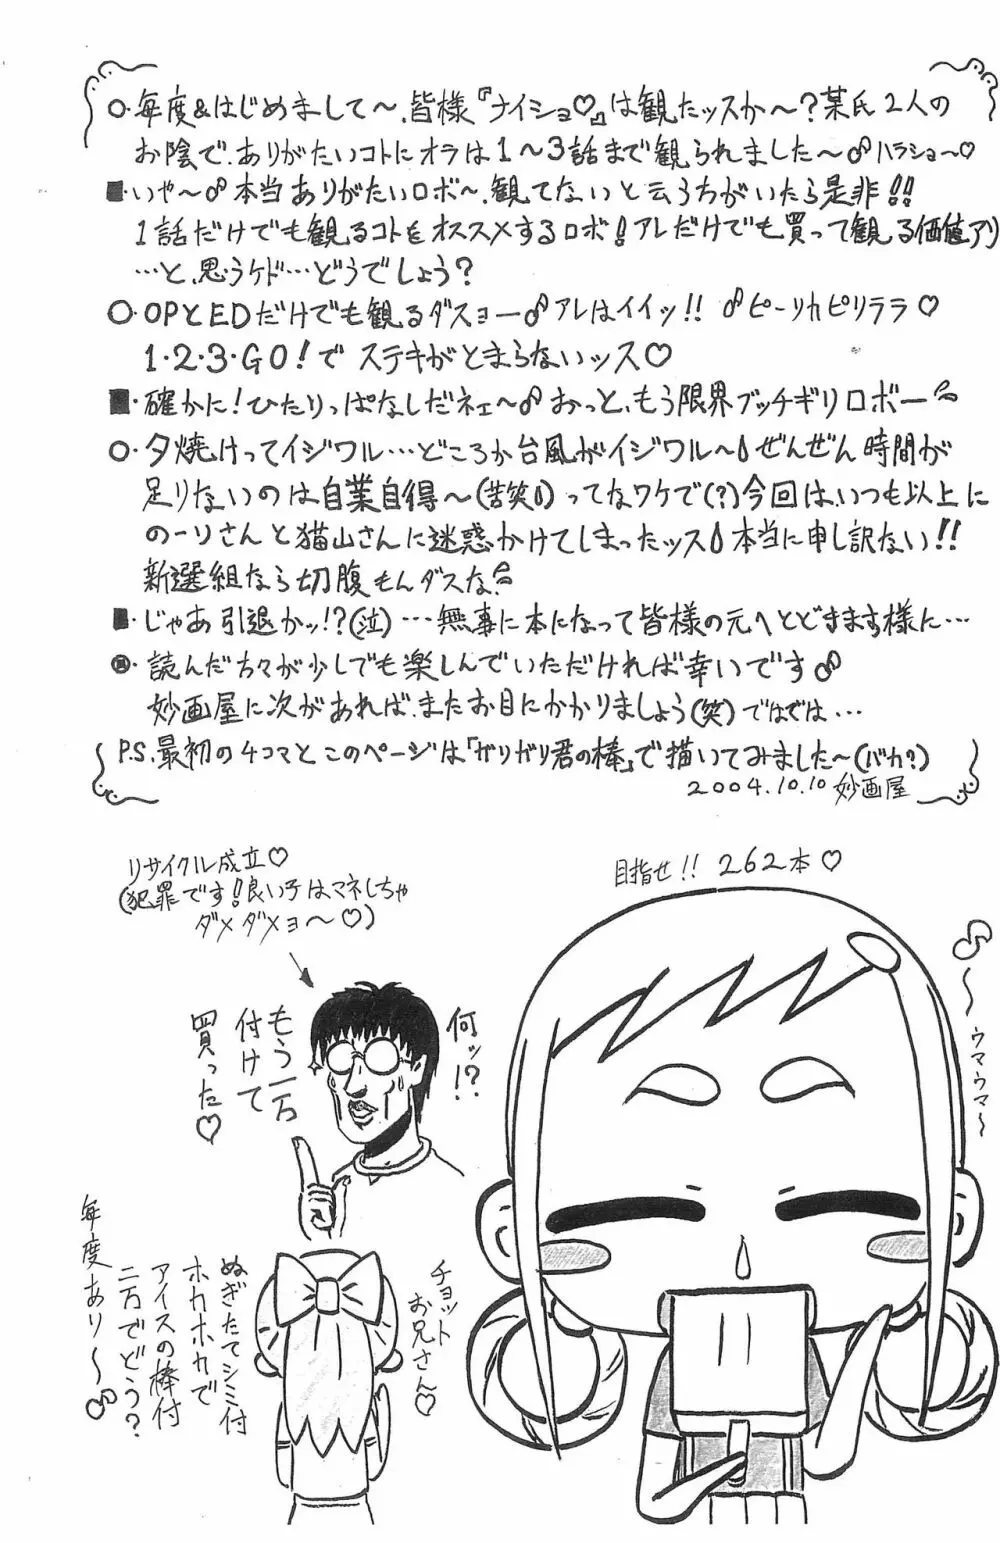 ○・毎度&はじめまして〜、皆様『ナイショ♡』は観たッスか〜?某氏2人の
お陰で、ありがたいコトにオラは1〜3話まで観られました〜♂ハラショ〜♡
■・いや〜♂本当ありがたいロボ〜、観てないと云う方がいたら是非!!
1話だけでも観るコトをオススメするロボ!アレだけでも買って観る価値アリ
…と、思うケド…どうでしょう?
○・OPとEDだけでも観るダスョー♂アレはイイッ!! ♂ピーリカピリララ♡
1・2・3・GO!で ステキがとまらないッス♡
■・確かに!ひたりっぱなしだネェ〜♂おっと、もう限界ブッチギリロボー
○・夕焼けってイジワル…どころか台風がイジワル〜 ぜんぜん時間が
足りないのは自業自得〜(苦笑)ってなワケで(?)今回は、いつも以上に
のーりさんと猫山さんに迷惑かけてしまったッス 本当に申し訳ない!!
新選組なら切腹もんダスな
■・じゃあ引退かッ!?(泣)…無事に本になって皆様の元へとどきます様に…
◎・読んだ方々が少しでも楽しんでいただければ幸いです♂
妙画屋に次があれば、またお目にかかりましょう(笑)ではでは…
P.S.最初の4コマとこのページは「ガリガリ君の棒」で描いてみました〜(バカ?)
2004.10.10 妙画屋
目指せ!! 262本♡
〜ウマウマ〜